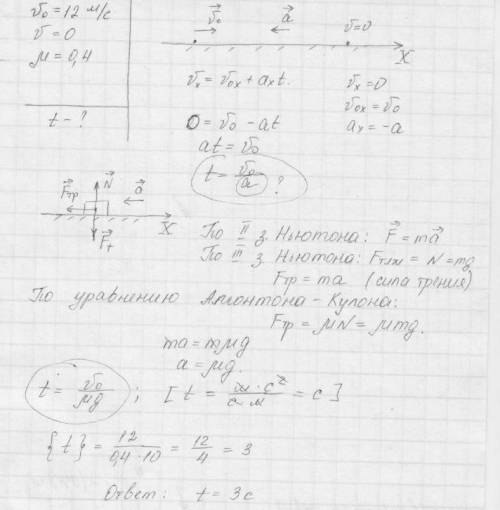 v₀ = 12 м/с
v = 0
μ = 0,4
t - ?
v⃗₀ a⃗ v=0
X
vₓ = v₀ₓ + aₓt.
vₓ = 0
v₀ₓ = v₀
aₓ = -a
0 = v₀ - at
at = v₀
t = v₀/a ?
F⃗тр N⃗ a⃗
X
F⃗т
По II з. Ньютона: F⃗ = ma⃗
По III з. Ньютона: Fтяж = N = mg
Fтр = ma (сила трения)
По уравнению Амонтона - Кулона:
Fтр = μN = μmg.
ma = mμg
a = μg.
t = v₀/μg ; [ t = м · с²/с · м = с ]
{t} = 12/0,4·10 = 12/4 = 3
Ответ: t = 3 с